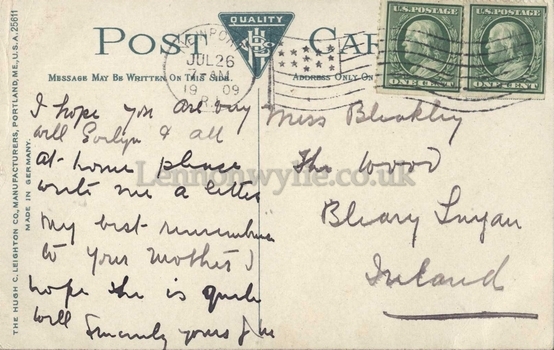 POST CARD
QUALITY
MESSAGE MAY BE WRITTEN ON THIS SIDE.
ADDRESS ONLY ON
NEWPORT
JUL 26
AM
1909
R.I.
U.S.POSTAGE
ONE CENT
U.S.POSTAGE
ONE CENT
THE HUGH C. LEIGHTON CO., MANUFACTURERS, PORTLAND, ME., U.S.A. 25611
MADE IN GERMANY.
I hope you are very
well Evelyn & all
at home please
write me a letter
my best remember
to your mother I
hope she is quite
well Sincerely yours
Miss Bleakley
The Wood
Bleary Lurgan
Ireland
Lennonwylie.co.uk